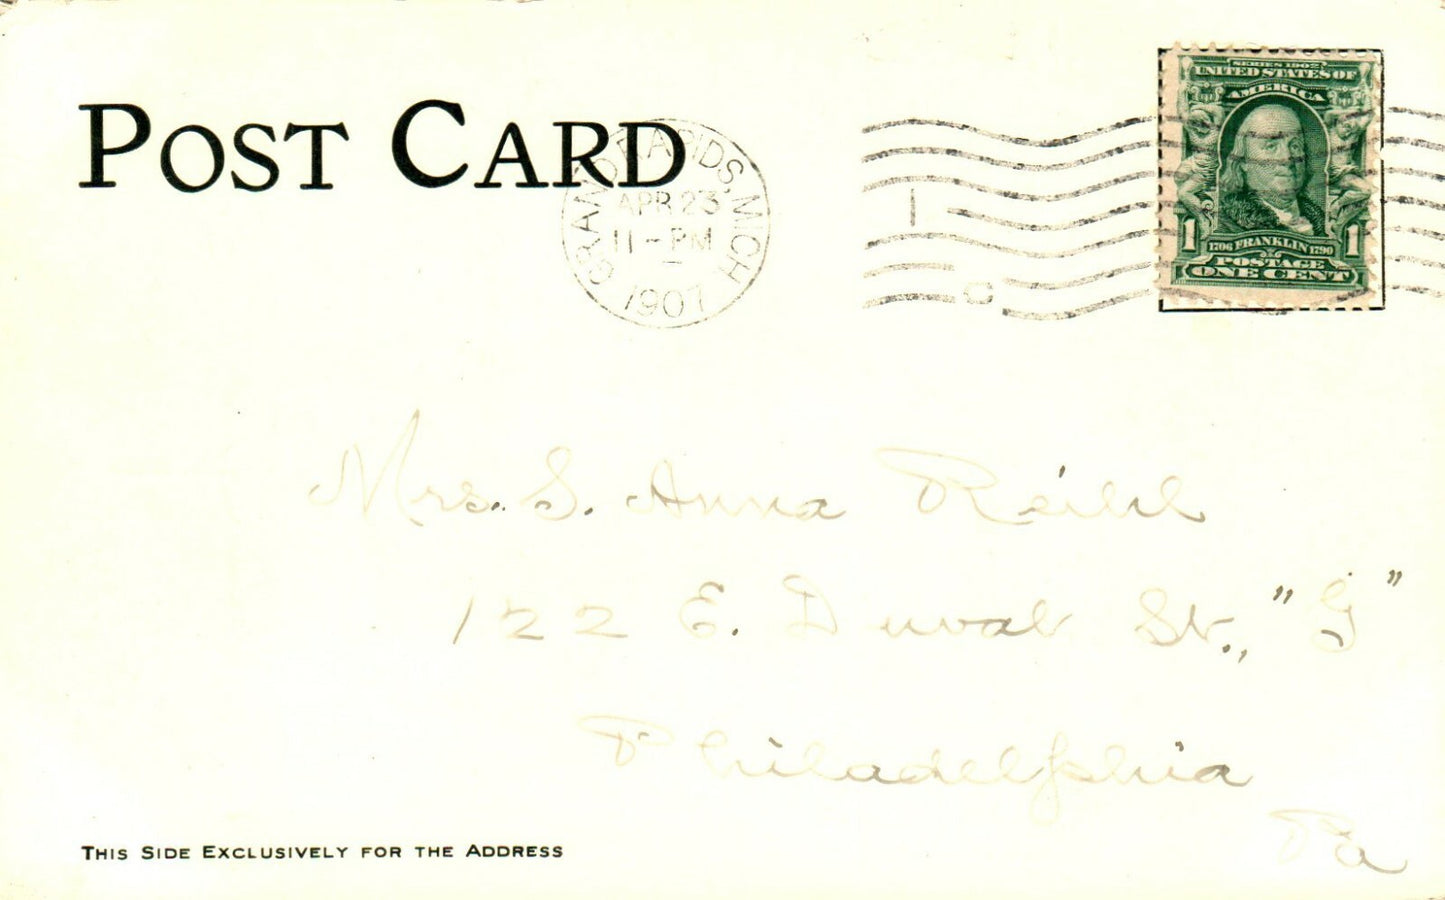 POST CARD
GRAND RAPIDS, MICH
APR 23
11-PM
1907
1
C
SERIES 1902
UNITED STATES OF
AMERICA
1 1
1706 FRANKLIN 1790
POSTAGE
ONE CENT
Mrs. S. Anna Reihl
122 E. Duval St., "G"
Philadelphia
Pa
THIS SIDE EXCLUSIVELY FOR THE ADDRESS